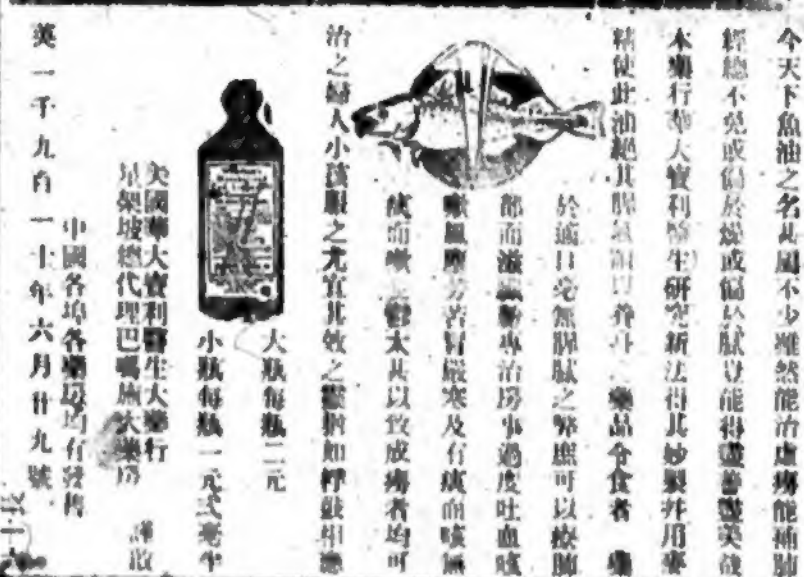 今天下魚油之名甚風不少雖然能治虛癆能補肺
經總不免或偏於燥或偏於膩豈能得盡善盡美哉
本藥行華大寶利醫生研究新法得其妙製幷用麥
精使此油絕其腥氣 藥品令食者
於適口毫無腥膩之弊應可以療肺
部而滋 專治房事過度吐血咳
嗽風 勞苦冒嚴寒及有痰而咳無
痰而嗽 鬱太甚以致成癆者均可
治之婦人小孩服之尤宜其效之 如桴鼓相應
大瓶每瓶二元
小瓶每瓶一元弍毫半
英國華大寶利醫生大藥行
星架坡總代理巴 施大藥房 謹啟
中國各埠各藥房均有發售
英一千九百一十年六月廿九號